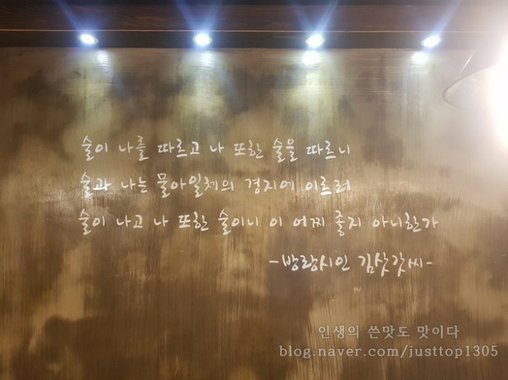 술이 나를 따르고 나 또한 술을 따르니
술과 나는 물아일체의 경지에 이르러
술이 나고 나 또한 술이니 이 어찌 좋지 아니한가
-방랑시인 김삿갓씨-
인생의 쓴맛도 맛이다
blog.naver.com/justtop1305